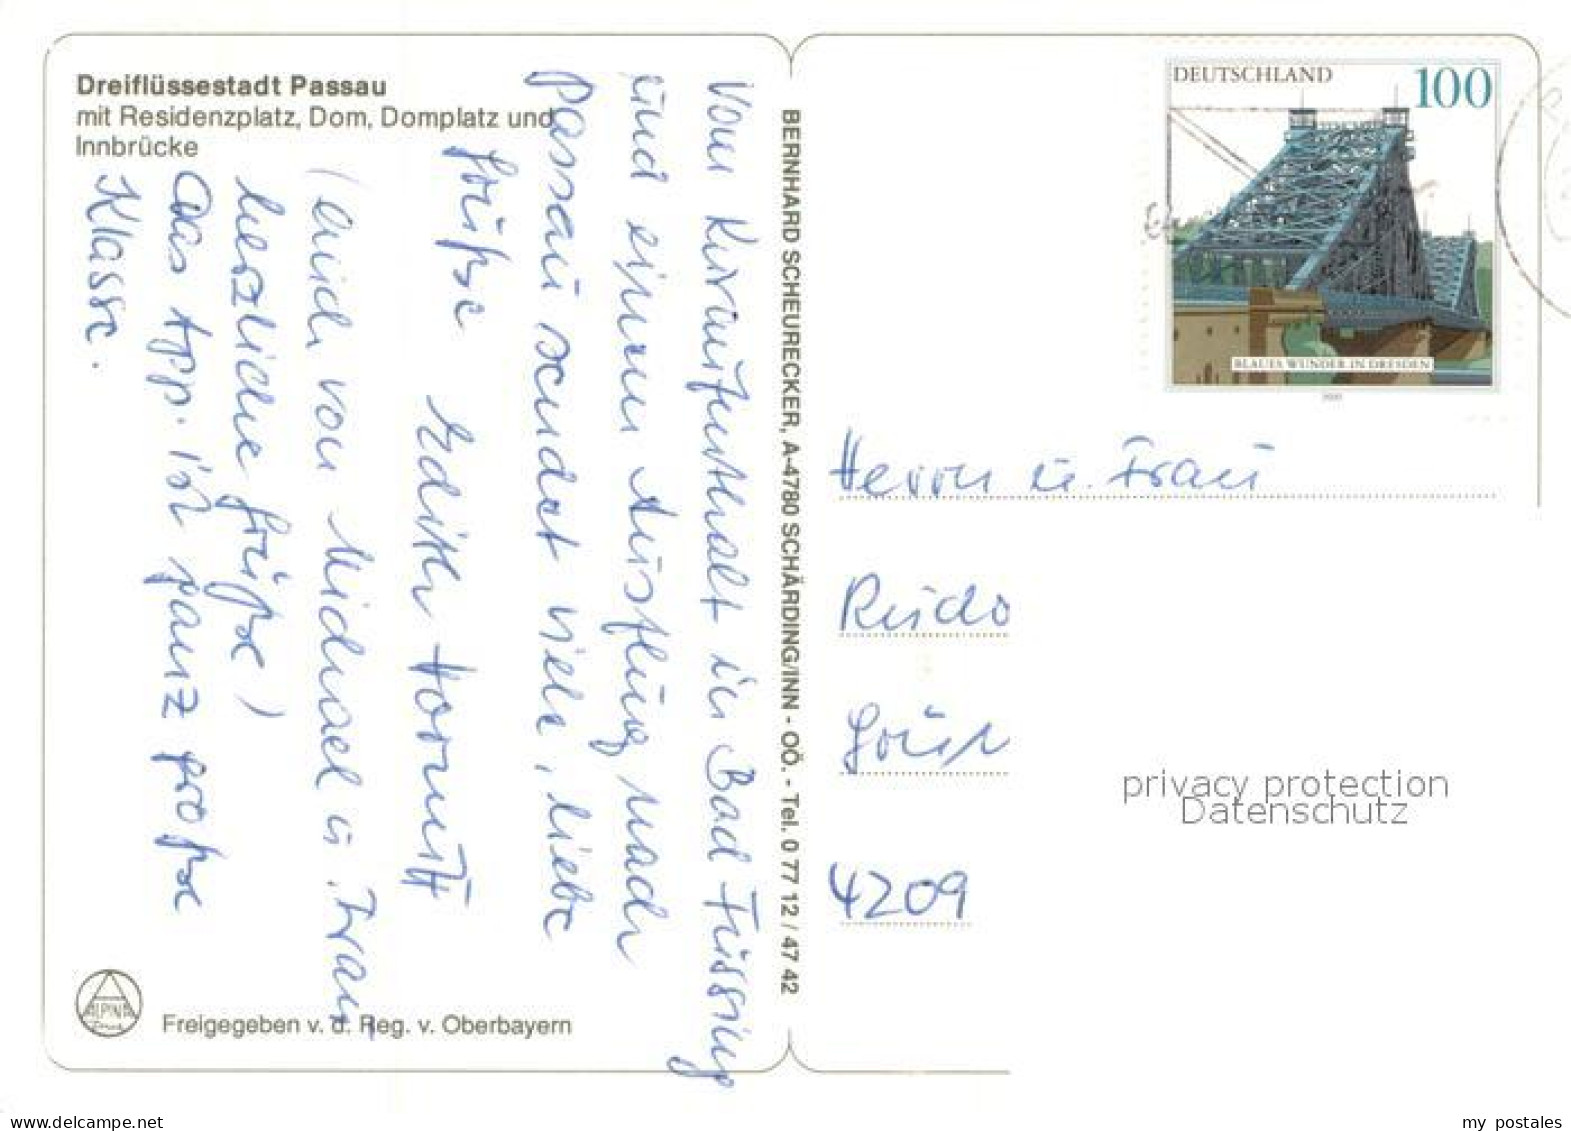 Dreiflüssestadt Passau
mit Residenzplatz, Dom, Domplatz und
Innbrücke
Vom Kuraufenthalt in Bad Füssing
und einem Ausflug nach
Passau sendet viele, liebe
Grüße Edith
(auch von Michael u. Frau
herzliche Grüße)
Das App. ist ganz große
Klasse.
ALPINA
Freigegeben v. d. Reg. v. Oberbayern
BERNHARD SCHEURECKER, A-4780 SCHÄRDING/INN - OÖ. - Tel. 0 77 12 / 47 42
DEUTSCHLAND 100
BLAUES WUNDER IN DRESDEN
2000
Herrn u. Frau
4209
privacy protection
Datenschutz
www.delcampe.net
my_postales